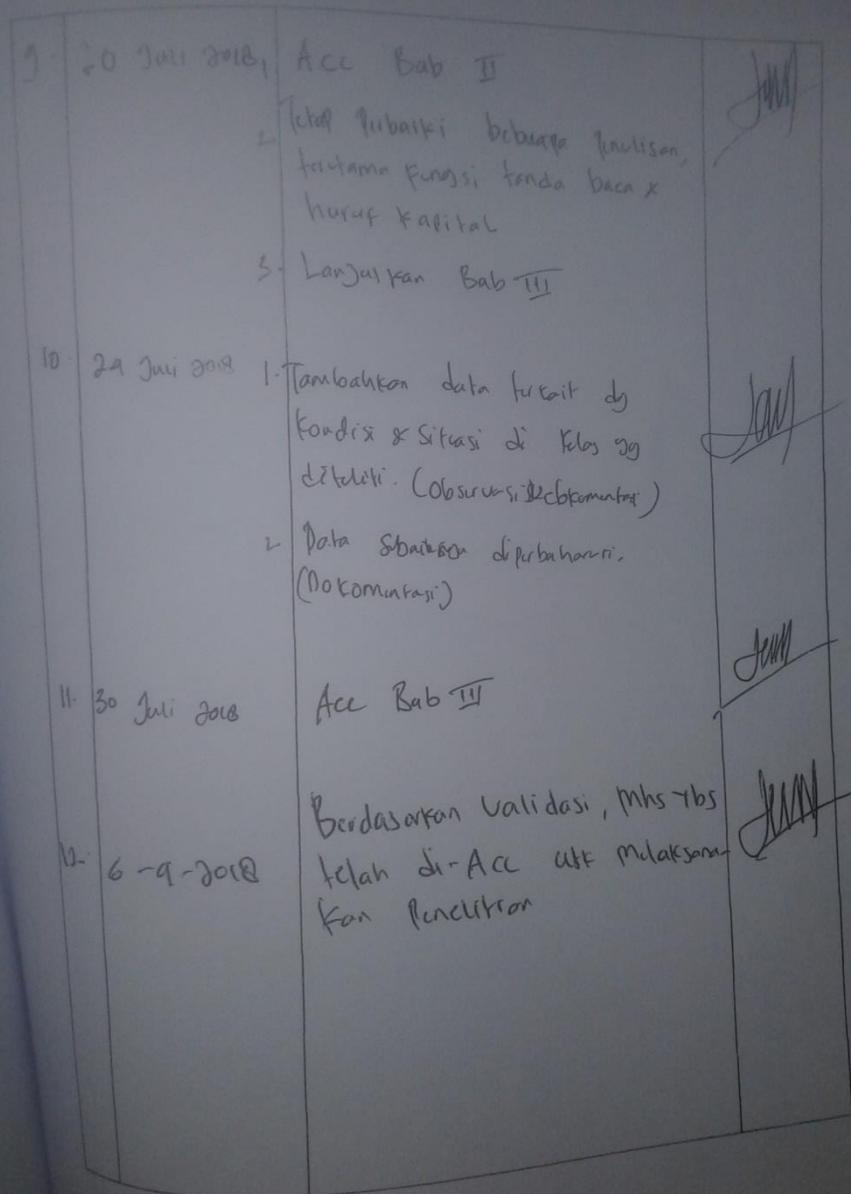 9. 20 Juli 2018 1 Acc Bab II
2 Tetap Perbaiki beberapa Penulisan,
terutama Fungsi tanda baca &
huruf Kapital
3. Lanjutkan Bab III
10. 24 Juli 2018 1. Tambahkan data terkait dg
Kondisi & Situasi di Kelas yg
diteliti. (Observasi & dokumentasi)
2 Data sebaiknya diperbaharui.
(Dokumentasi)
11. 30 Juli 2018 Acc Bab III
Berdasarkan Validasi, Mhs Ybs
12. 6-9-2018 telah di-Acc utk Melaksana-
Kan Penelitian